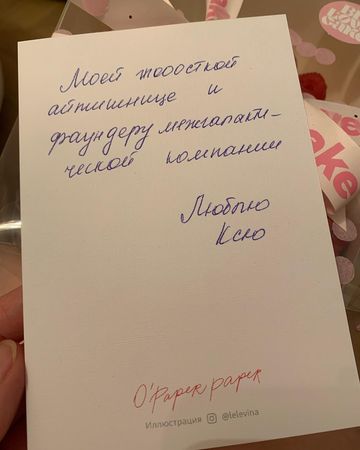 Моей тооосткой
айтишнице и
фаундеру межгалакти-
ческой компании
Люблю
Ксю
O'Paper paper
Иллюстрация @lelevina
ke